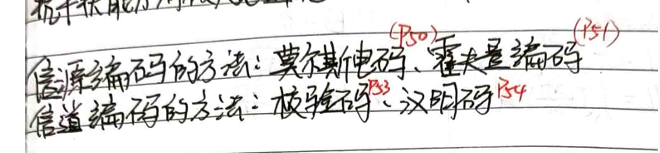 信源编码的方法：莫尔斯电码(P50)、霍夫曼编码(P51)
信道编码的方法：校验码P53、汉明码P54